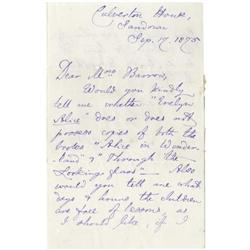 Culverton House,
Sandown
Sep. 17, 1875
Dear Mrs Barron,
Would you kindly
tell me whether "Evelyn
Alice" does or does not
possess copies of both the
books "Alice in Wonder-
land" & "Through the
Looking-glass" — Also
would you tell me what
days & hours the children
are free of lessons, as
I should like, if I